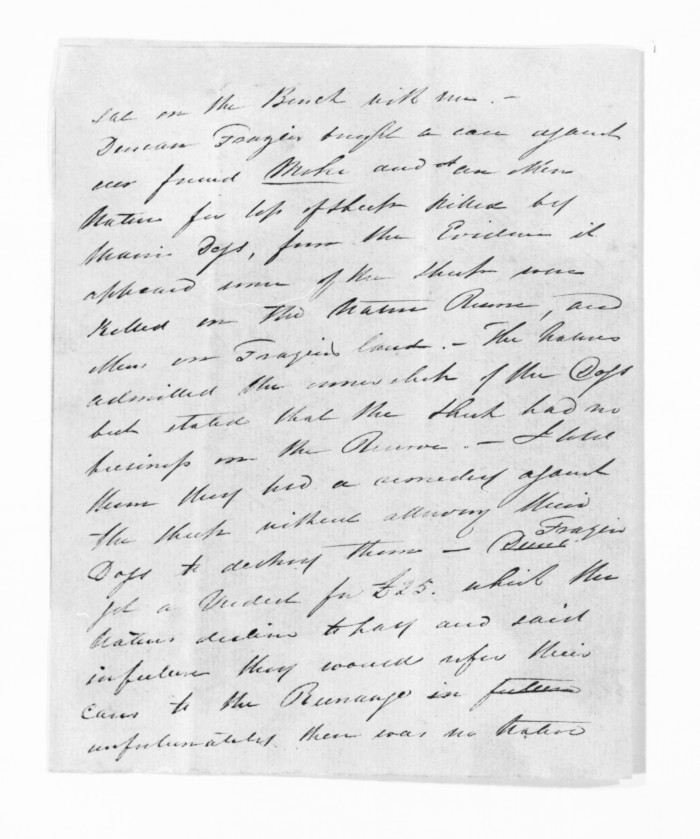 sat on the Bench with me. -
Duncan Frazier brought a case against
our friend Mohi and an other
Native for loss of sheep killed by
their Dogs, from the Evidence it
appeared some of the sheep were
killed on the Native Reserve, and
others on Fraziers land. - The Natives
admitted the ownership of the Dogs
but stated that the sheep had no
business on the Reserve. - I told
them they had a remedy against
the sheep without allowing their
Dogs to destroy them - Frazier
got a Verdict for £25. which the
Natives decline to pay and said
in future they would refer their
cases to the Runanga in future
unfortunately there was no Native